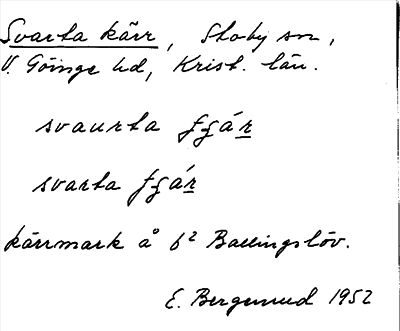 Svarta kärr, Stoby sn,
V. Göinge hd, Krist. län.
svaurta fgár
svarta fgár
kärrmark å 6² Ballingslöv.
E. Bergsund 1952